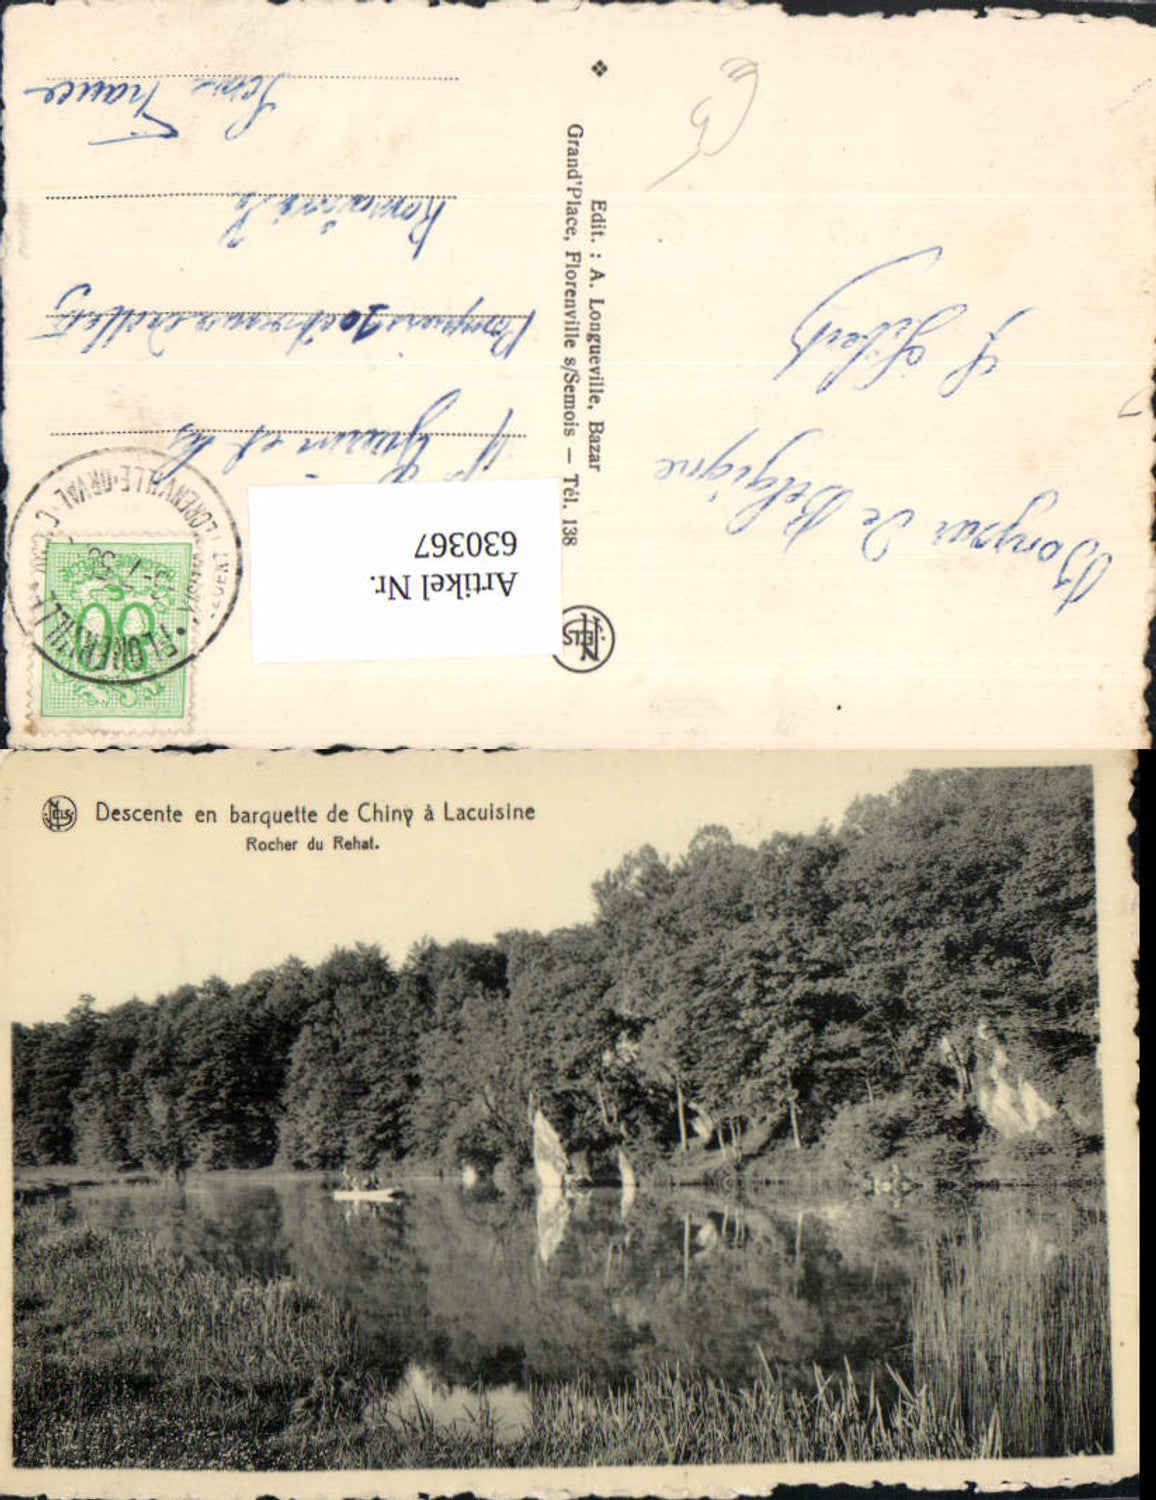 Bonjour de Belgique
Edit. : A. Longueville, Bazar
Grand'Place, Florenville s/Semois — Tél. 138
NELS
Guerin et les
Romainville
Seine France
FLORENVILLE
FLORENVILLE-ORVAL
Artikel Nr.
630367
NELS
Descente en barquette de Chiny à Lacuisine
Rocher du Rehat.